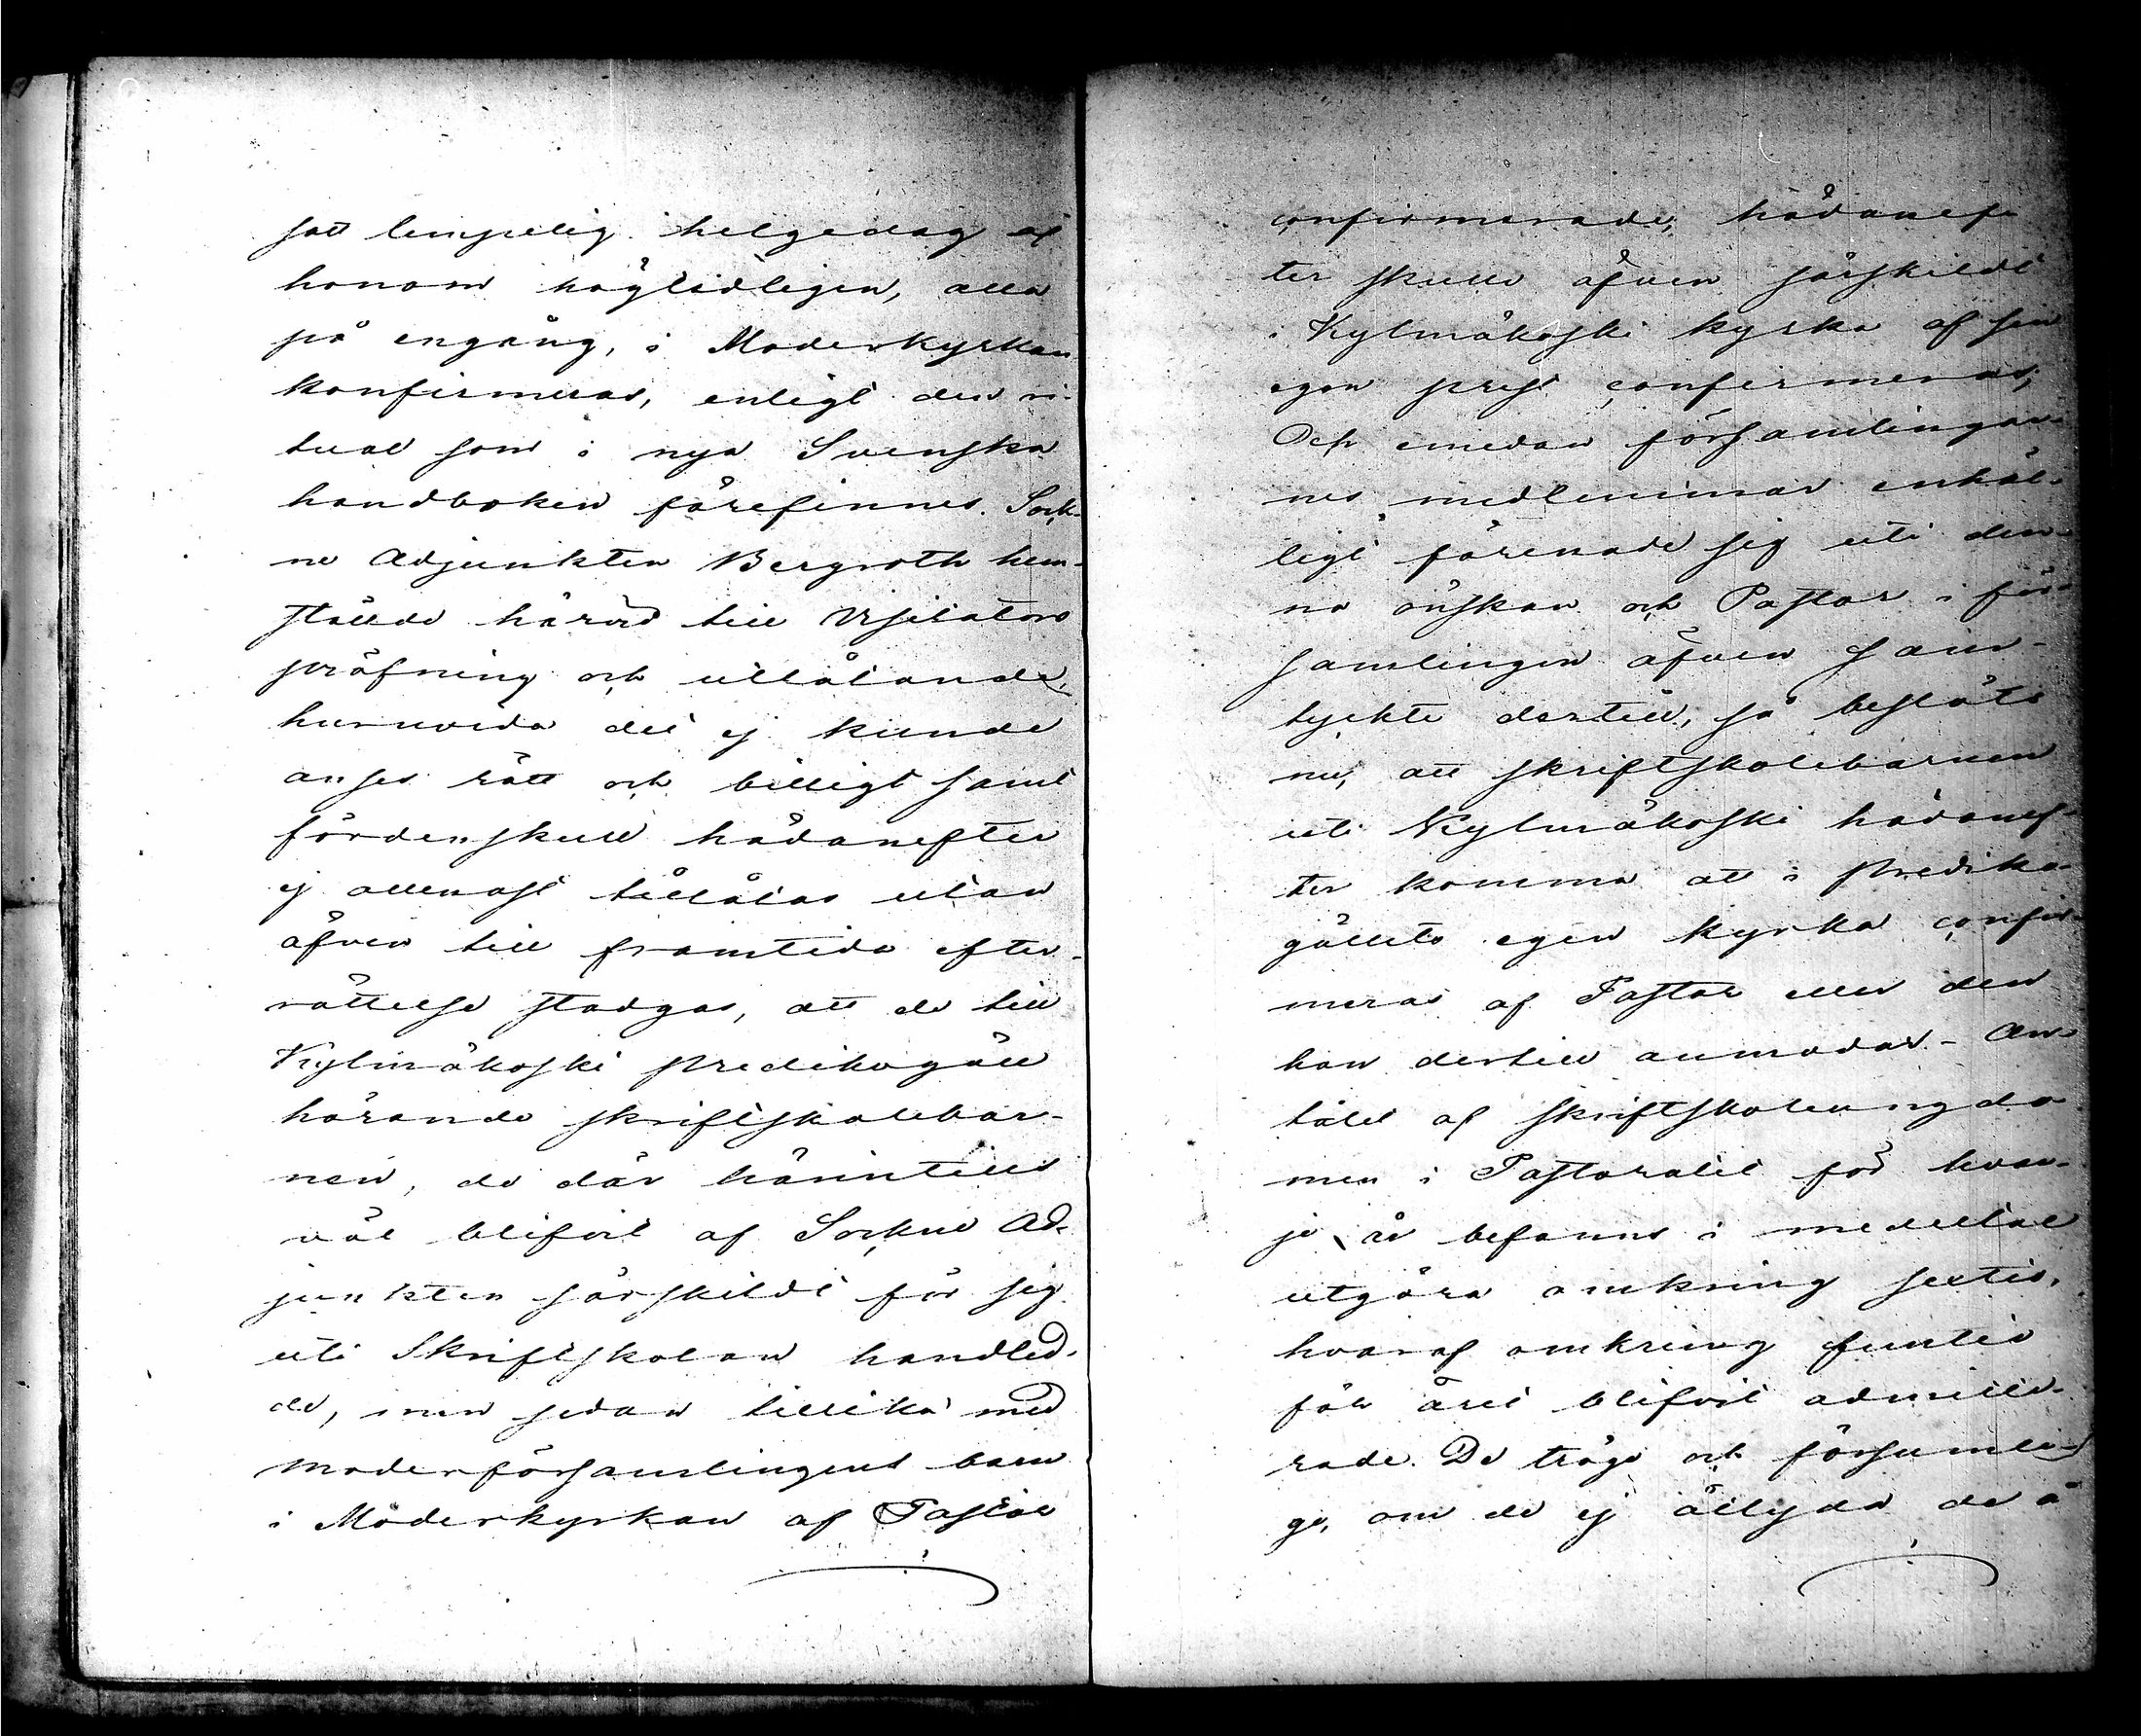 satt lempelig helgedag af
honom högtidligen, alla
på engång, i Moderkyrkan
konfirmeras, enligt den ri-
tual som i nya Svenska
handboken förefinnes. Sock-
ne Adjunkten Bergroth hem-
stälde härvid till Visitators
pröfning och utlåtande,
huruvida det ej kunde
anses rätt och billigt samt
fördenskull hädanefter
ej allenast tillåtas utan
äfven till framtida efter-
rättelse stadgas, att de till
Kylmäkoski predikogäll
hörande skriftskolebar-
nen, de där härintills
väl blifvit af Sockne Ad-
junkten särskildt för sig
uti Skriftskolan handled-
de, men sedan tillika med
moderförsamlingens barn
i Moderkyrkan af Pastor
confirmerade, hädanef-
ter skulle äfven särskildt
i Kylmäkoski kyrka af sin
egen prest confirmeras;
Och emedan församlingar-
nes medlemmar enhäl-
ligt förenade sig uti den-
na önskan och Pastor i för-
samlingen äfven sam-
tyckte dertill, så beslöts
nu, att skriftskolebarnen
uti Kylmäkoski hädanef-
ter komma att i predika-
gällets egen kyrka confir-
meras af Pastor eller den
han dertill anmodar. - An-
talet af skriftskoleungdo-
men i Pastoratet för hvar-
je år befanns i medeltal
utgöra omkring sextio,
hvaraf omkring femtio
för året blifvit admitte-
rade. De tröge och försumli-
ge, om de ej åtlyda de å